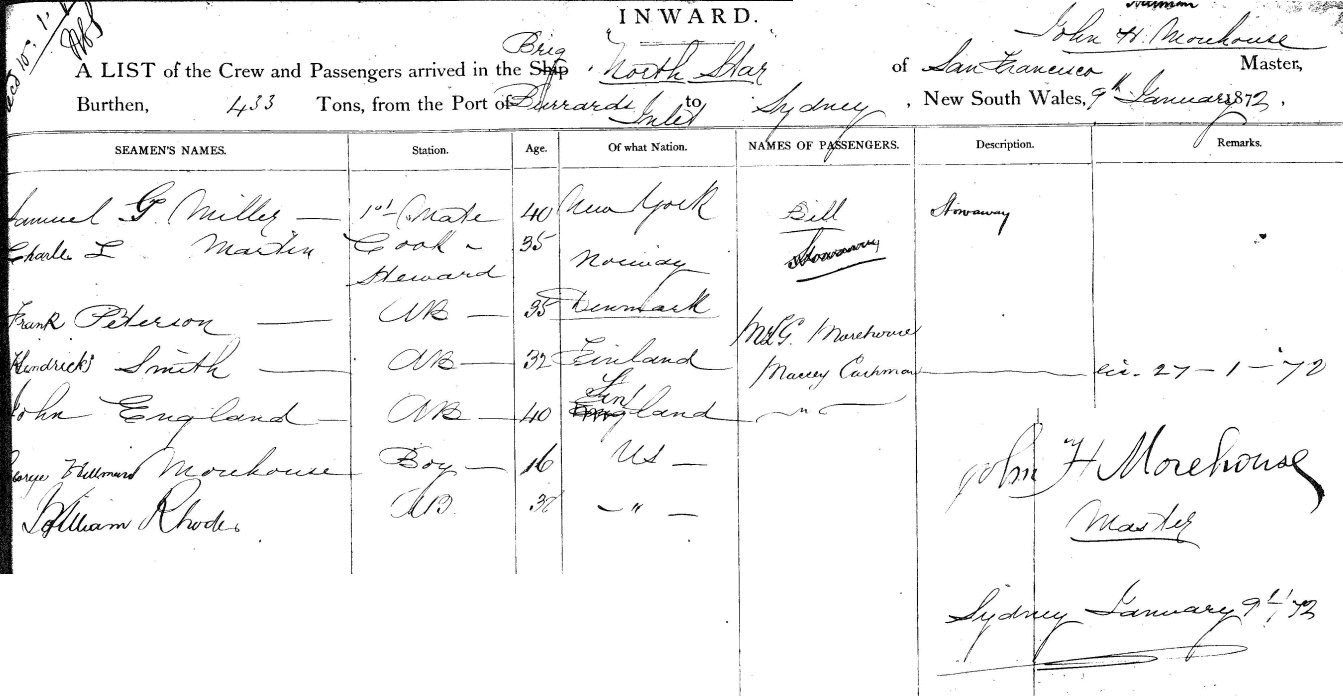 INWARD.
John H. Morehouse
A LIST of the Crew and Passengers arrived in the Ship Brig North Star of San Francisco Master,
Burthen, 433 Tons, from the Port of Burrards Inlet to Sydney, New South Wales, 9th January 1872,
SEAMEN'S NAMES. Station. Age. Of what Nation. NAMES OF PASSENGERS. Description. Remarks.
Samuel G. Miller — 1st Mate 40 New York Bill Stowaway
Charles L Martin Cook 35 Norway Stowaway
Steward
Frank Peterson — AB — 35 Denmark
G. Morehouse
Hendrick Smith — AB — 32 Finland Cashman 27 - 1 - 72
John England — AB — 40 England Finland "
George Morehouse Boy — 16 US —
William Rhodes AB. — " —
John H Morehouse
Master
Sydney January 9th/72